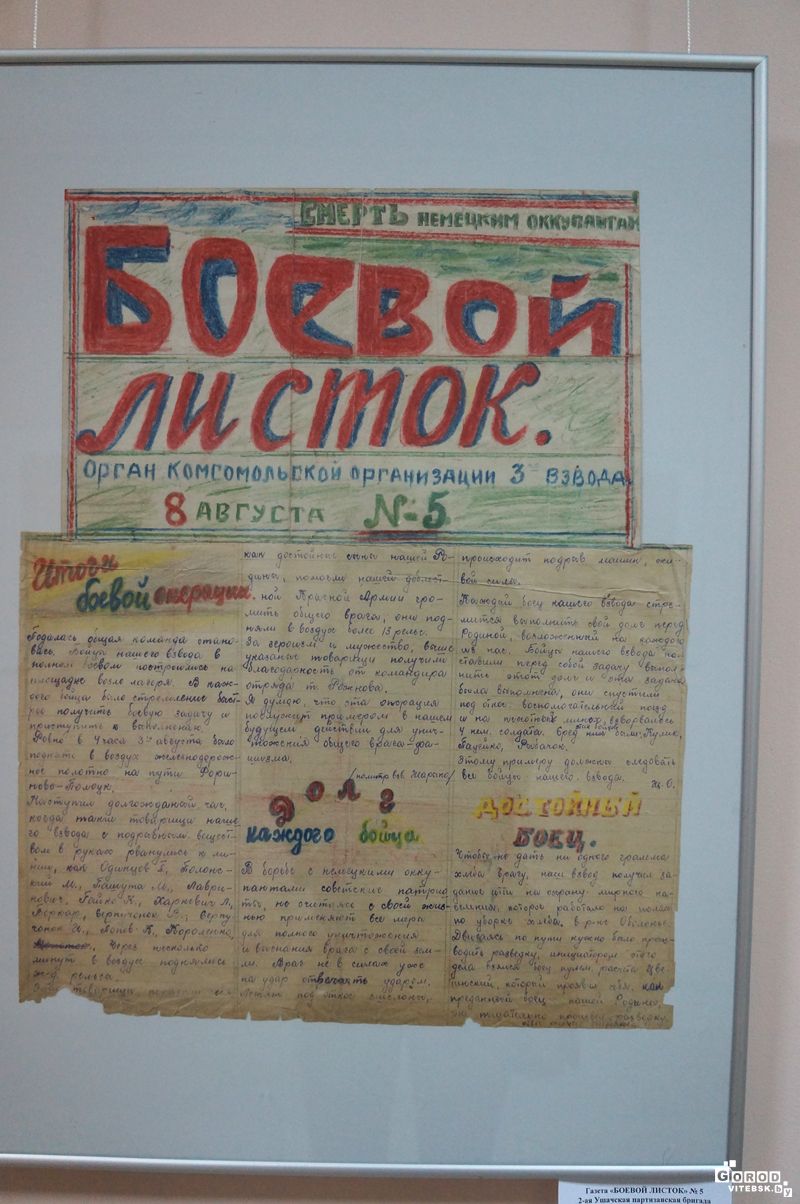 СМЕРТЬ НЕМЕЦКИМ ОККУПАНТАМ
БОЕВОЙ
ЛИСТОК.
ОРГАН КОМСОМОЛЬСКОЙ ОРГАНИЗАЦИИ 3 ВЗВОДА
8 АВГУСТА №-5
Итоги
боевой операции.
Подалась общая команда стано-
вись. Бойцы нашего взвода в
полном боевом построились на
площадке возле лагеря. В каж-
дого бойца было стремление быст-
рее получить боевую задачу и
приступить к выполнению.
Ровно в 4 часа 3го августа было
поднято в воздух железнодорож-
ное полотно на пути
ново-Полоцк.
Наступил долгожданный час,
когда такие товарищи наше-
го взвода с подрывным вещест-
вом в руках рванулись к ли-
нии, как Одинцов П., Полонс-
кий М., Пашута М., Лаври-
нович, Гайко К., Харкевич Л.,
Верпчонок В.,
К. Короленко,
Через несколько
минут в воздух поднялись
ж.д. рельса.
товарищи
как достойные сыны нашей Ро-
дины, помогли нашей доблест-
ной Красной Армии гро-
мить общего врага, они под-
няли в воздух более 13 рельс.
За героизм и мужество, выше
указаные товарищи получили
благодарность от командира
отряда т. Рожнова.
Я думаю, что эта операция
послужит примером в нашем
будущем действии для унич-
тожения общего врага-фа-
шизма.
/политр взв
Долг
каждого бойца
В борьбе с немецкими окку-
пантами советские патрио-
ты, не считаясь с своей жиз-
нью применяют все меры
для полного уничтожения
и выгнания врага с своей зем-
ли. Враг не в силах уже
на удар отвечать ударом.
Летят под откос эшелоны,
происходит подрыв машин, жи-
вой силы.
Каждый боец нашего взвода стре-
мится выполнить свой долг перед
Родиной, возложенный на каждого
из нас. Бойцы нашего взвода пос-
тавили перед собой задачу выпол-
нить этот долг и эта задача
была выполнена, они спустили
под откос вспомогательный поезд
и на пехотных минах, взорвалось
4 нем. солдата.
Рыбачок.
Этому примеру должны следовать
все бойцы нашего взвода.
ДОСТОЙНЫЙ
БОЕЦ.
Чтобы не дать ни одного грамма
хлеба врагу, наш взвод получил за-
дание итти на охрану мирного на-
селения, которое работало на полях
по уборке хлеба, в р-не Оболенье.
Двигаясь по пути нужно было произ-
водить разведку, инициатором этого
дела взялся боец пулем. расчета
который проявил себя, как
преданный боец нашей Родины,
он тщательно произвел разведку
Газета «БОЕВОЙ ЛИСТОК» № 5
2-ая Ушачская партизанская бригада
GOROD
VITEBSK.by